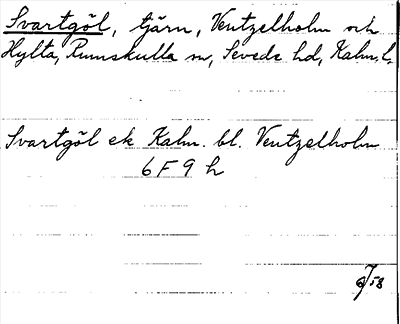 Svartgöl, tjärn, Ventzelholm och
Hylta, Rumskulla sn, Sevede hd, Kalm. l.
Svartgöl ek Kalm. bl. Ventzelholm
6 F 9 h